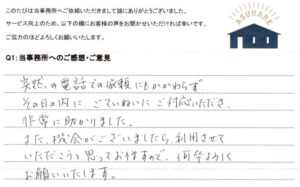 このたびは当事務所へご依頼いただきまして誠にありがとうございました。
サービス向上のため、以下の欄にお客様の声をお聞かせいただければ幸いです。
ご協力のほどよろしくお願いいたします。
ASUHARE
Q1:当事務所へのご感想・ご意見
突然の電話での依頼にもかかわらず
その日の内に、ていねいにご対応いただき、
非常に助かりました。
また、機会がございましたら、利用させて
いただこうと思っておりますので、何卒よろしく
お願いいたします。